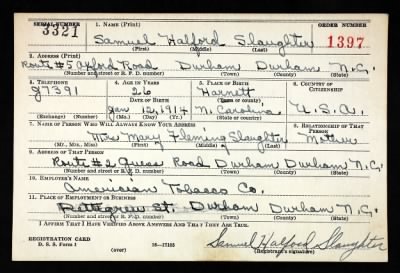 SERIAL NUMBER 1. NAME (Print) ORDER NUMBER
3321 Samuel Halford Slaughter 1397
(First) (Middle) (Last)
2. ADDRESS (Print)
Route #5 Oxford Road Durham Durham N.C.
(Number and street or R. F. D. number) (Town) (County) (State)
3. TELEPHONE 4. AGE IN YEARS 5. PLACE OF BIRTH 6. COUNTRY OF CITIZENSHIP
J7391 26 Harnett
DATE OF BIRTH (Town or county)
Jan 12, 1914 N. Carolina U.S.A.
(Exchange) (Number) (Mo.) (Day) (Yr.) (State or country)
7. NAME OF PERSON WHO WILL ALWAYS KNOW YOUR ADDRESS 8. RELATIONSHIP OF THAT PERSON
Mrs Mary Fleming Slaughter Mother
(Mr., Mrs., Miss) (First) (Middle) (Last)
9. ADDRESS OF THAT PERSON
Route #2 Guess Road Durham Durham N.C.
(Number and street or R. F. D. number) (Town) (County) (State)
10. EMPLOYER'S NAME
American Tobacco Co.
11. PLACE OF EMPLOYMENT OR BUSINESS
Pettigrew St. Durham Durham N.C.
(Number and street or R. F. D. number) (Town) (County) (State)
I AFFIRM THAT I HAVE VERIFIED ABOVE ANSWERS AND THAT THEY ARE TRUE.
REGISTRATION CARD
D. S. S. Form 1 (over) 16—17105 Samuel Halford Slaughter
(Registrant's signature)